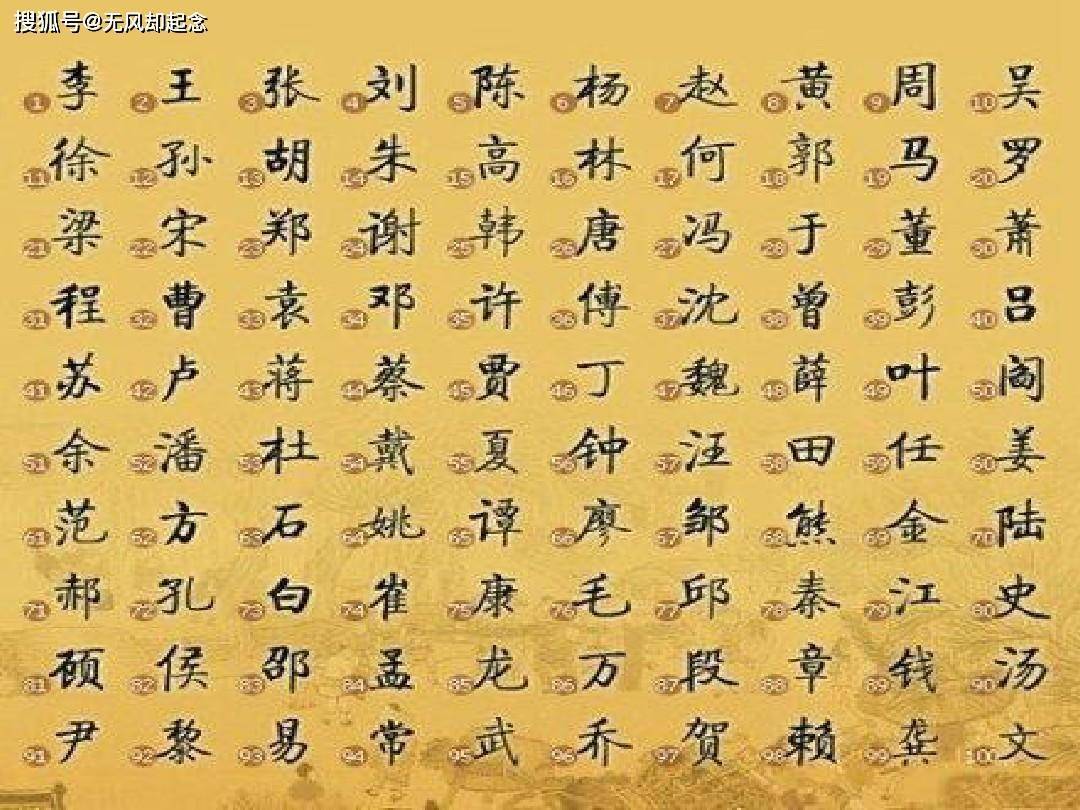 搜狐号@无风却起念
1李 2王 3张 4刘 5陈 6杨 7赵 8黄 9周 10吴
11徐 12孙 13胡 14朱 15高 16林 17何 18郭 19马 20罗
21梁 22宋 23郑 24谢 25韩 26唐 27冯 28于 29董 30萧
31程 32曹 33袁 34邓 35许 36傅 37沈 38曾 39彭 40吕
41苏 42卢 43蒋 44蔡 45贾 46丁 47魏 48薛 49叶 50阎
51余 52潘 53杜 54戴 55夏 56钟 57汪 58田 59任 60姜
61范 62方 63石 64姚 65谭 66廖 67邹 68熊 69金 70陆
71郝 72孔 73白 74崔 75康 76毛 77邱 78秦 79江 80史
81顾 82侯 83邵 84孟 85龙 86万 87段 88章 89钱 90汤
91尹 92黎 93易 94常 95武 96乔 97贺 98赖 99龚 100文